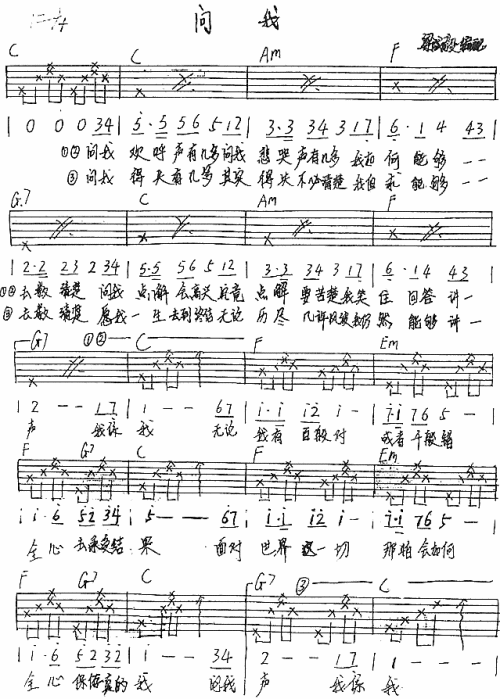 问 我
C C Am F
| 0 0 0 34 | 5·5 56 5 12 | 3·3 34 3 17 | 6·1 4 43 |
①②问我 欢呼声有几多问我 悲哭声有几多 我 何能够 一一
③问我 得失有几多其实 得失不必清楚我但求能够 一一
G7 C Am F
| 2·2 23 2 34 | 5·5 56 5 12 | 3·3 34 3 17 | 6·14 43 |
①②去数清楚 问我 点解会高兴究竟 点解 要苦楚我笑住回答讲一
③去数清楚 愿我一生去到终结无论 历尽几许风波我仍然能够讲一
G7 ①② C F Em
| 2 — — 17 | 1 — — 67 | i·i i2 i — | 7·i 76 5 — |
声 我係我 无论 我有百般对 或者千般错
F G7 C F Em
| i i·6 52 34 | 5 — — 67 | i·i i2 i — | 7·i 76 5 — |
全心去承受结果 面对世界一切 那怕会如何
F G7 C G7 ③ C
| i i·6 52 32 | 1 — — 34 | 2 — — 17 | 1 — — — |
全心保存真的我 问我 声 我係我